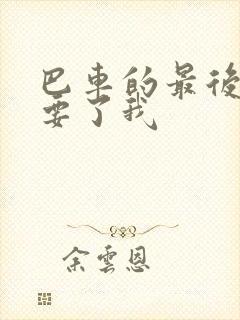 巴車的最後
要了我
余雲恩